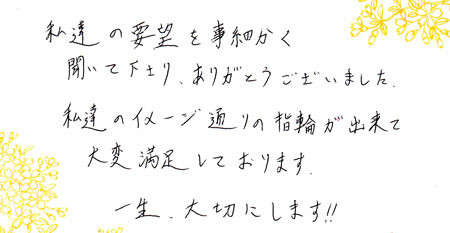 私達の要望を事細かく
聞いて下さり、ありがとうございました。
私達のイメージ通りの指輪が出来て
大変満足しております。
一生、大切にします!!